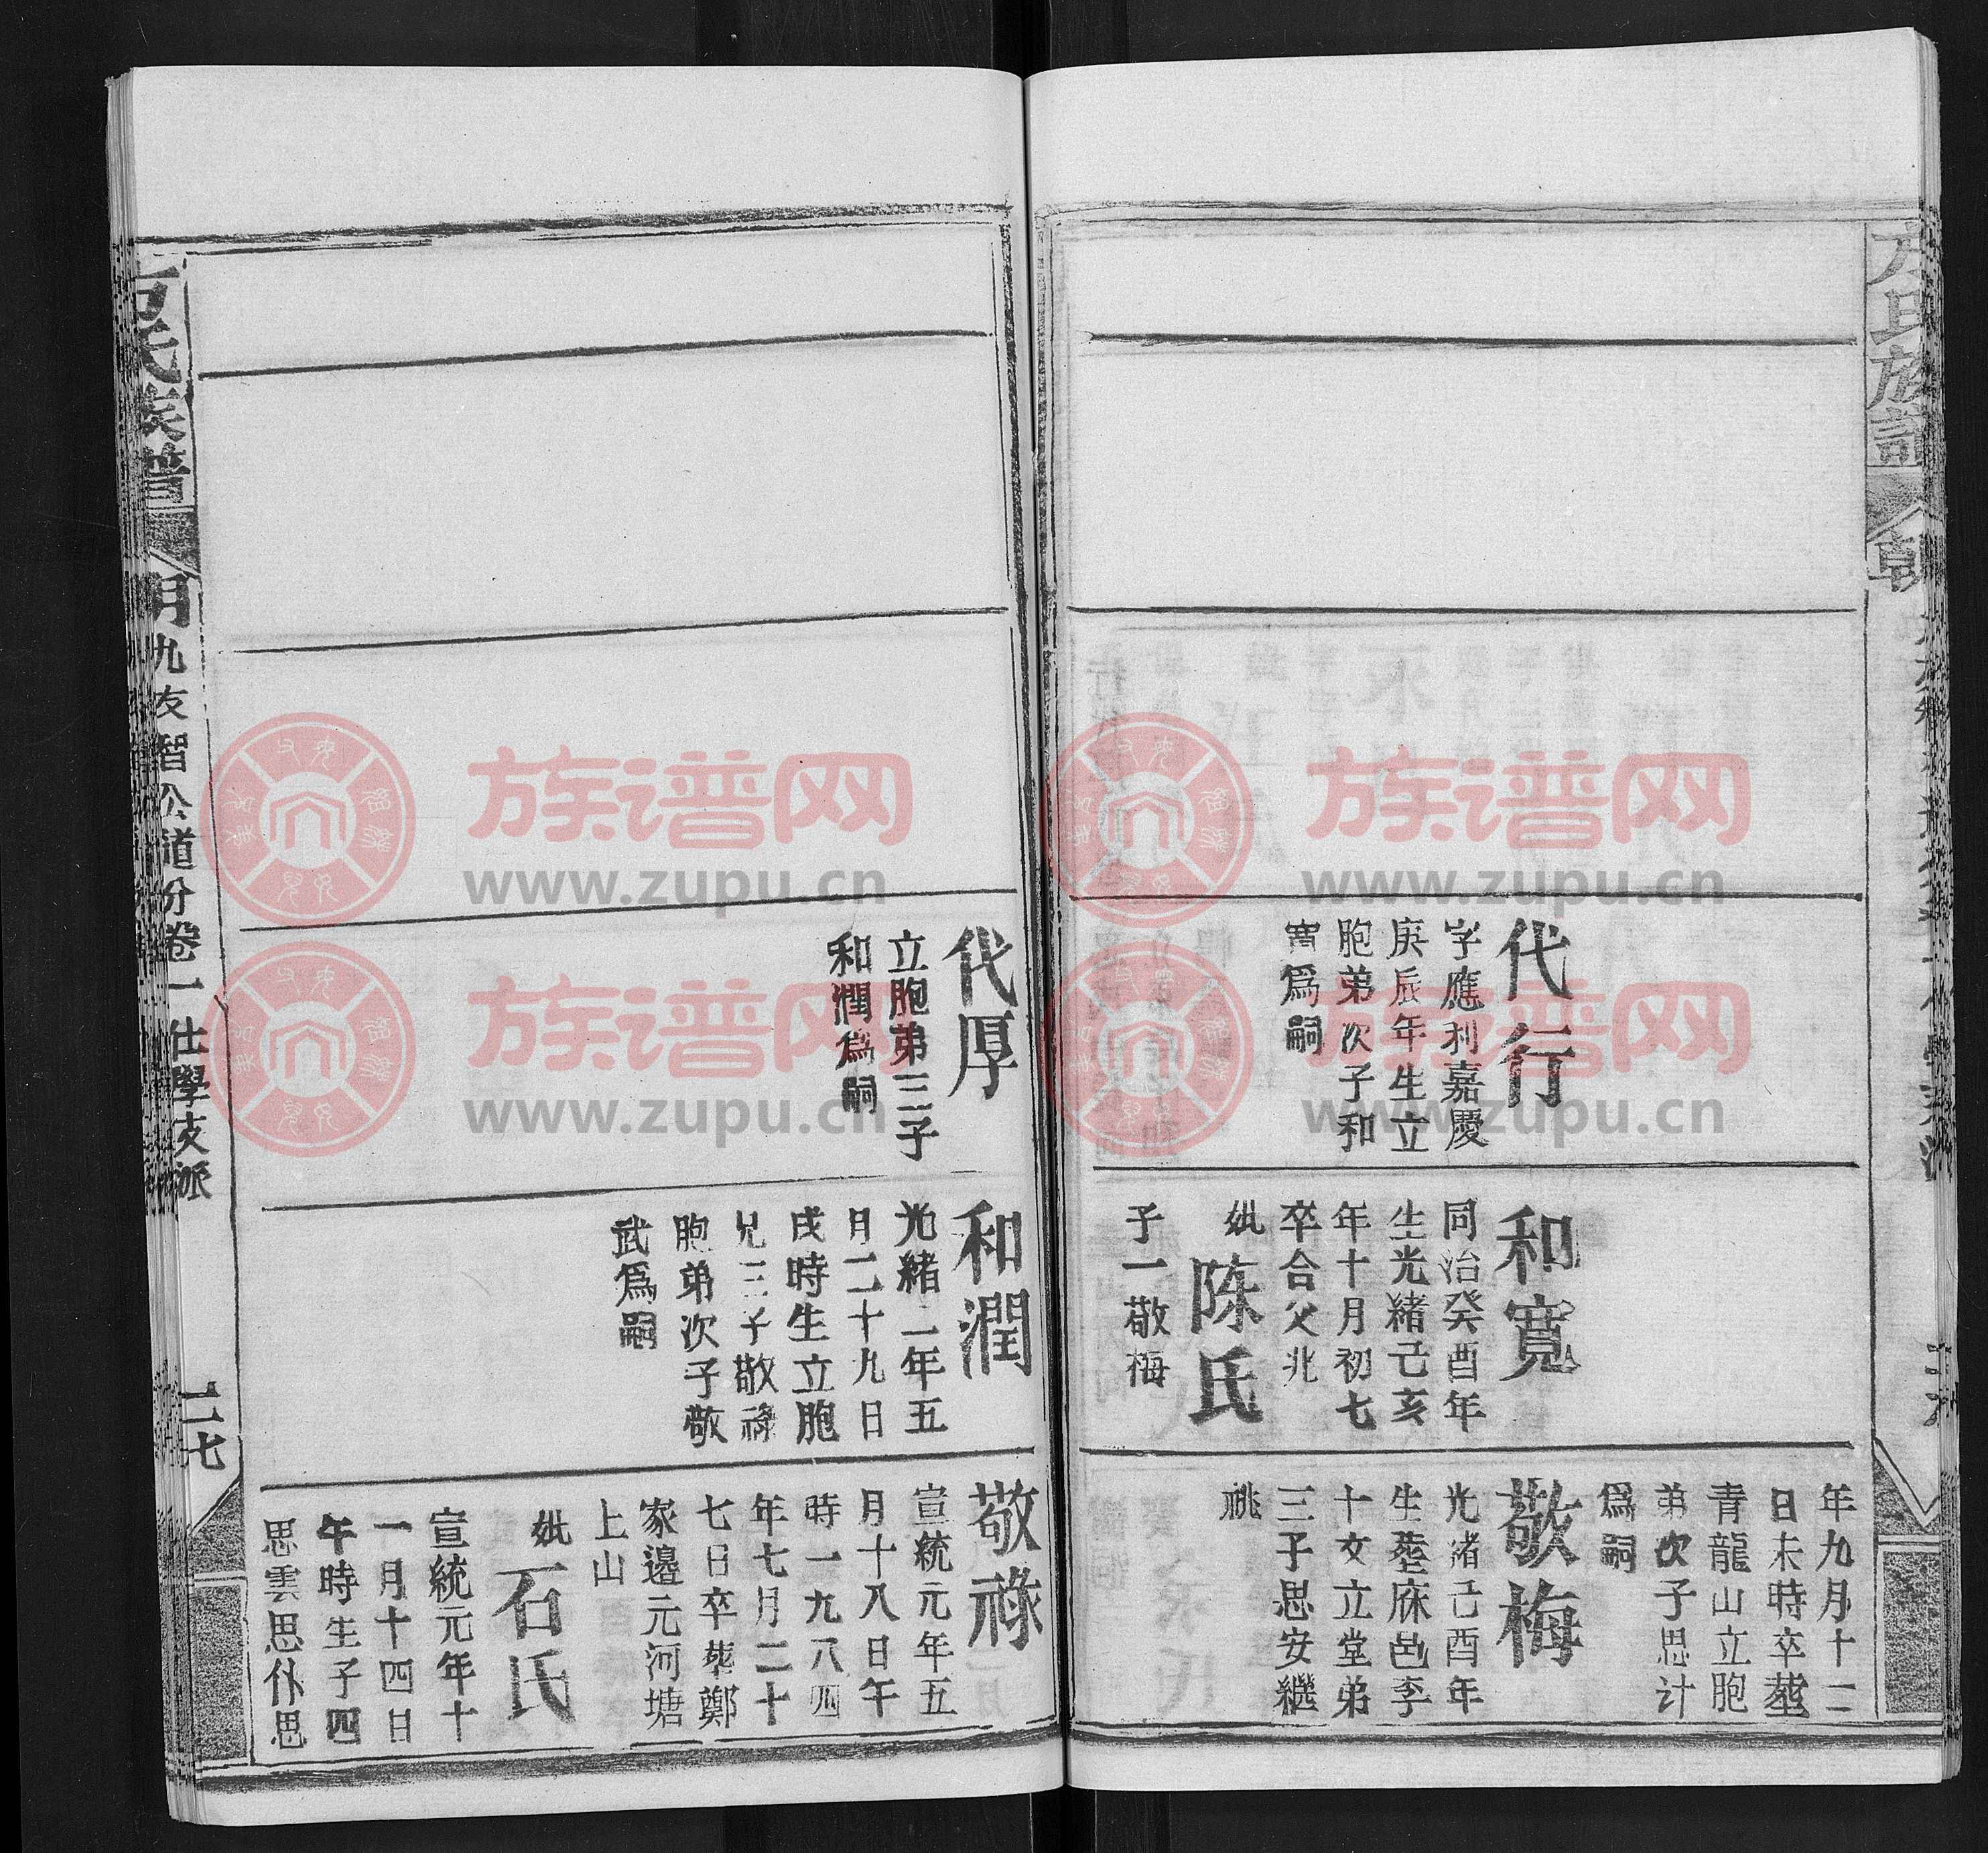 代行
字應利嘉慶
庚辰年生立
胞弟次子和
寬為嗣
和寬
同治癸酉年
生光緒己亥
年十月初七
卒合父兆
妣
陈氏
子一敬梅
年九月十二
日未時卒塟
青龍山立胞
弟次子思计
為嗣
敬梅
光緒己酉年
生塟庥邑李
十文立堂弟
三子思安繼
祧
代厚
立胞弟三子
和潤為嗣
和潤
光緒二年五
月二十九日
戌時生立胞
兄三子敬祿
胞弟次子敬
武為嗣
敬祿
宣統元年五
月十八日午
時一九八四
年七月二十
七日卒葬鄭
家邊元河塘
上山
妣
石氏
宣統元年十
一月十四日
午時生子四
思雲思仆思
方氏族譜
九友智公道分卷一仕學支派
二七
族谱网
www.zupu.cn
族谱网
www.zupu.cn
族谱网
www.zupu.cn
族谱网
www.zupu.cn